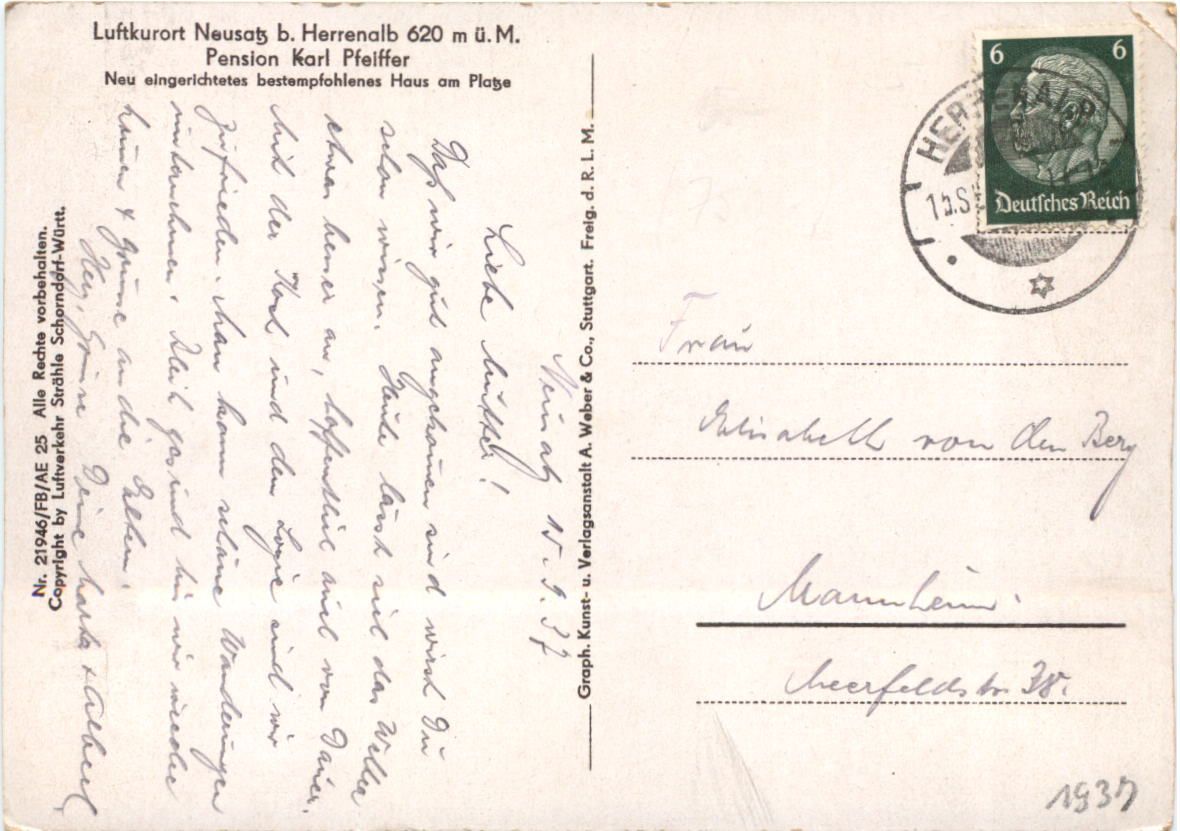 Luftkurort Neusatz b. Herrenalb 620 m ü. M.
Pension Karl Pfeiffer
Neu eingerichtetes bestempfohlenes Haus am Platze
Neusatz 15. 9. 37
Liebe Mutter!
Daß wir gut angekommen sind wirst Du
schon wissen. Heute lässt sich das Wetter
etwas besser an, hoffentlich auch von Dauer.
Mit der Kost und dem Logie sind wir
zufrieden. Man kann schöne Wanderungen
unternehmen.
& Grüsse an die Eltern.
Hzl. Grüsse Deine Marta & Albert
Nr. 21946/FB/AE 25 Alle Rechte vorbehalten.
Copyright by Luftverkehr Strähle Schorndorf-Württ.
Graph. Kunst- u. Verlagsanstalt A. Weber & Co., Stuttgart. Freig. d. R. L. M.
6 6
Deutsches Reich
HERRENALB
15.S
Frau
Elisabeth von den Berg
Mannheim.
Meerfeldstr. 38.
1937